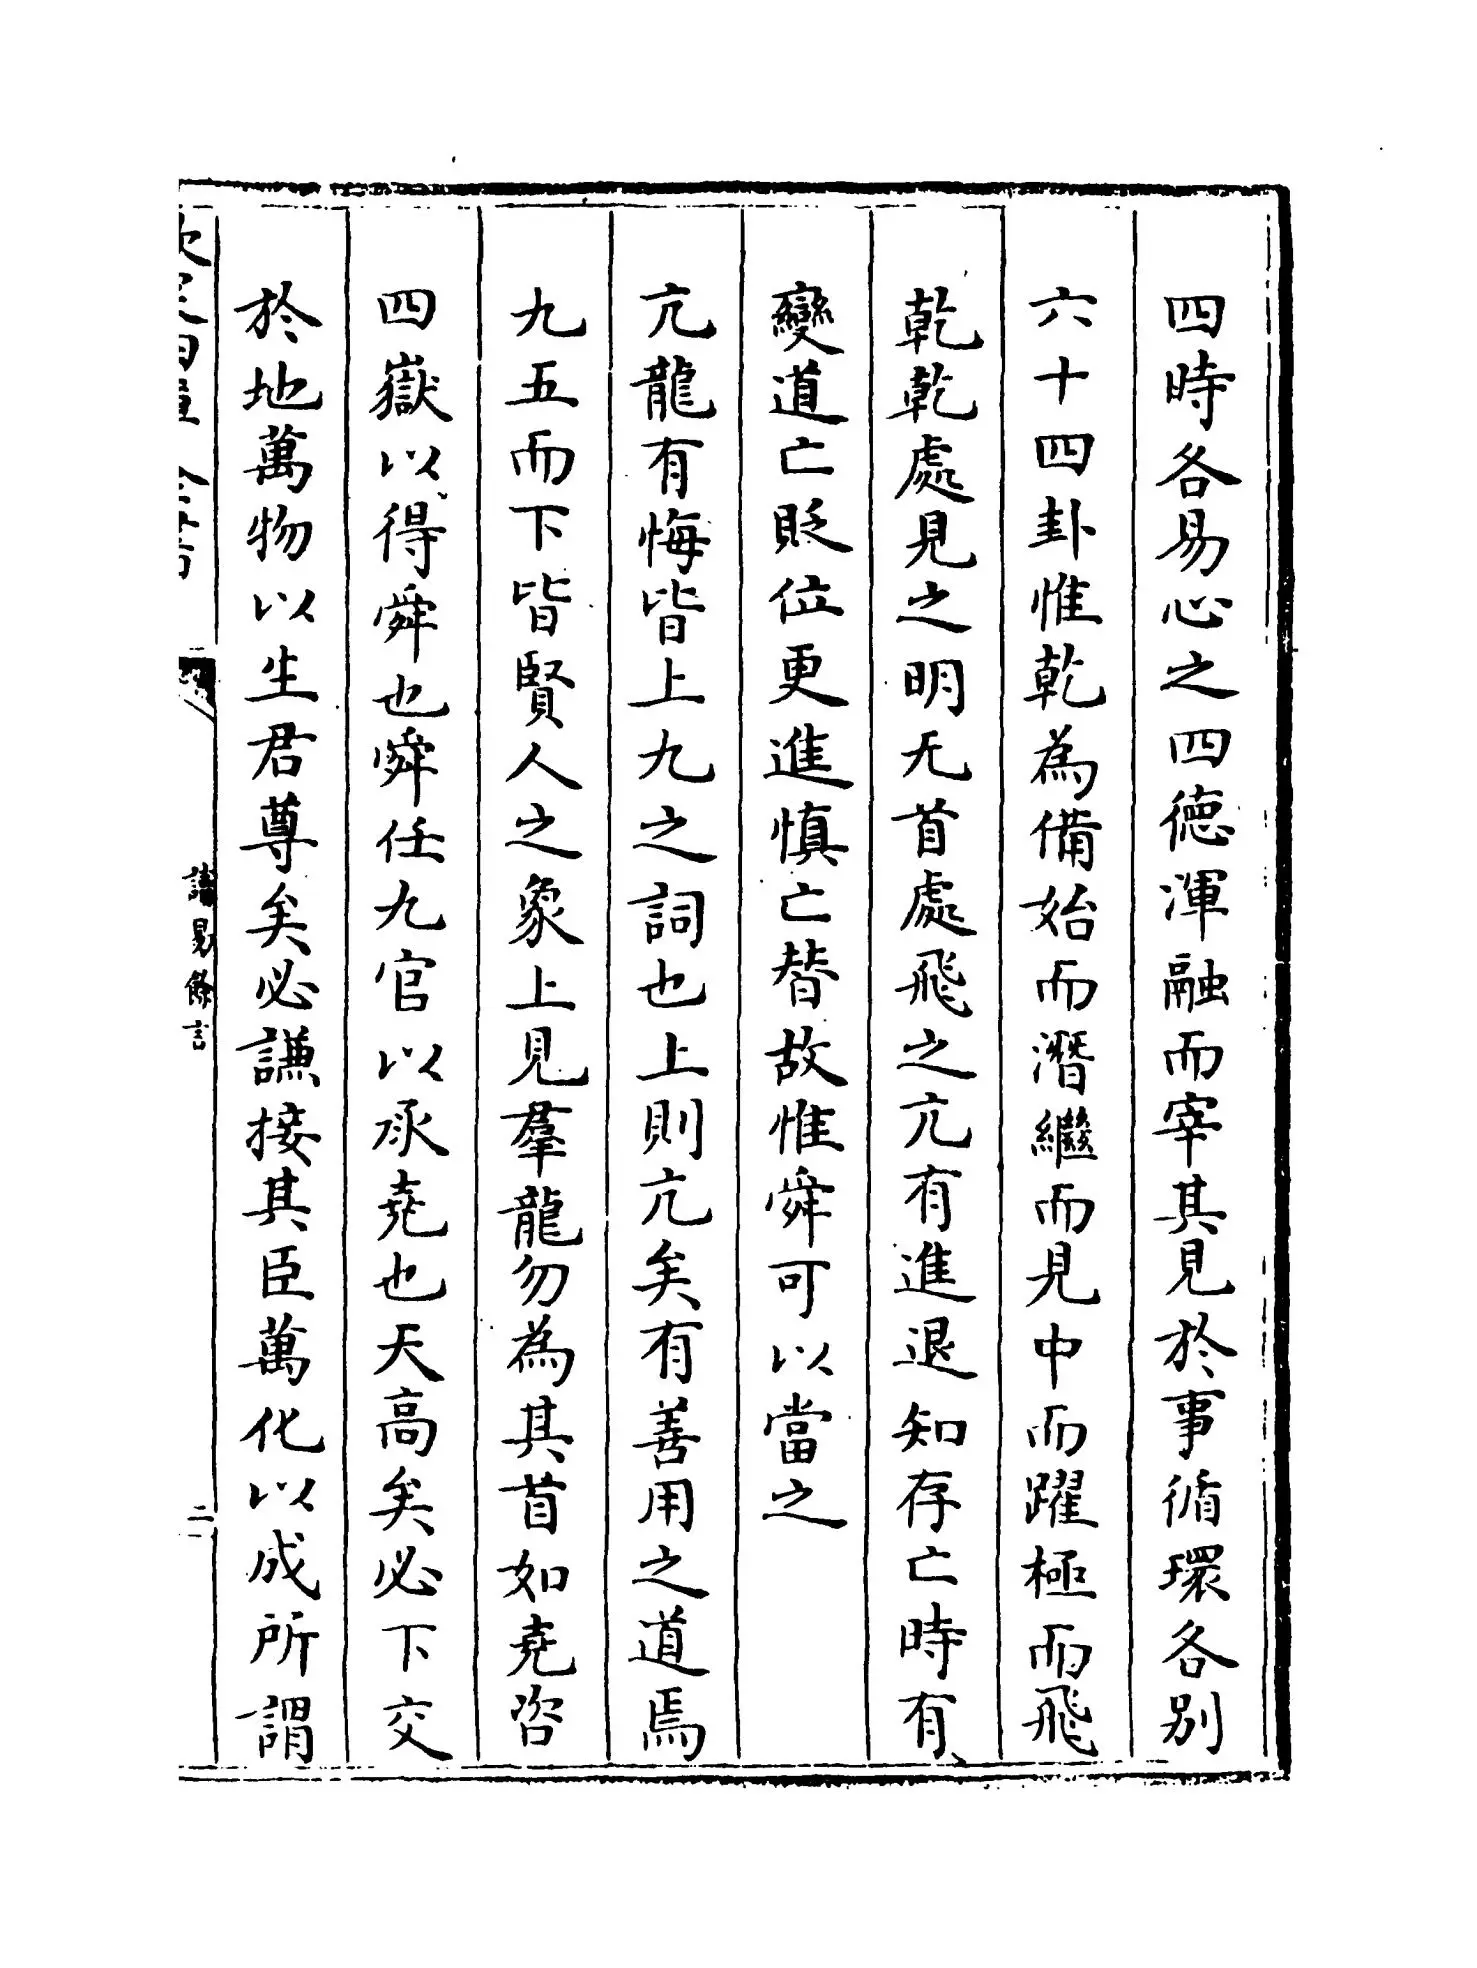 四時各易心之四徳渾融而宰其見於事循環各別
六十四卦惟乾為備始而潛繼而見中而躍極而飛
乾乾處見之明无首處飛之亢有進退知存亡時有
變道亡貶位更進慎亡替故惟舜可以當之
亢龍有悔皆上九之詞也上則亢矣有善用之道焉
九五而下皆賢人之象上見羣龍勿為其首如堯咨
四嶽以得舜也舜任九官以承堯也天高矣必下交
於地萬物以生君尊矣必謙接其臣萬化以成所謂
讀易餘言
二